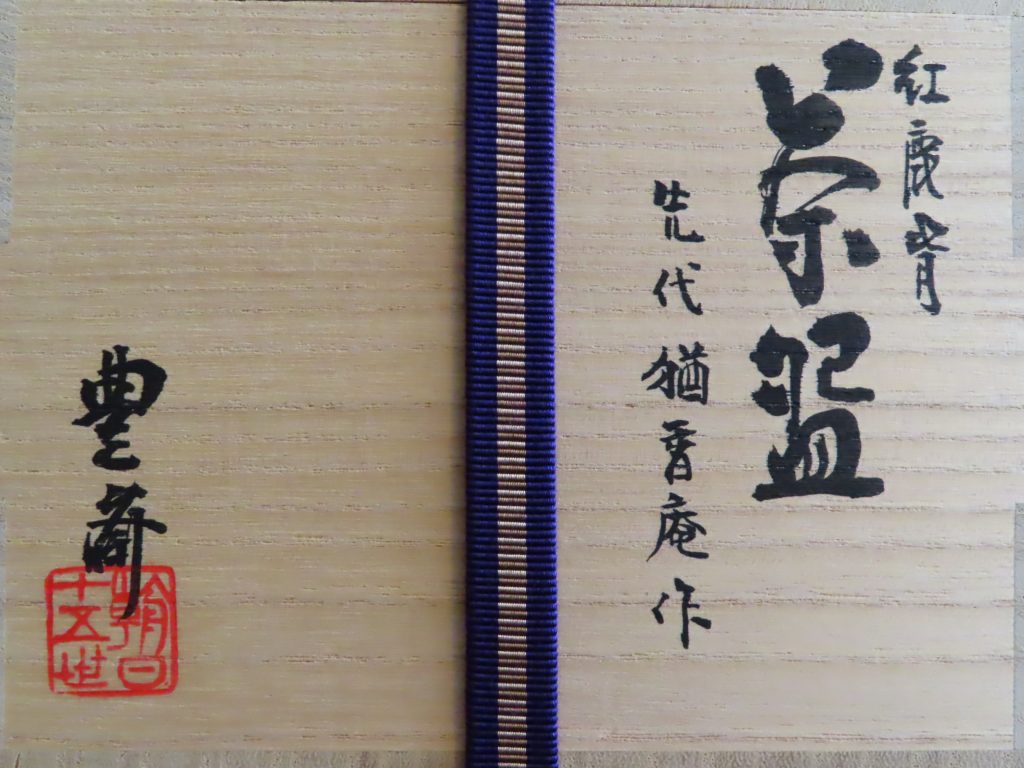 紅鹿背
茶盌
先代 猶香庵 作
豊斎
朝日
十五世